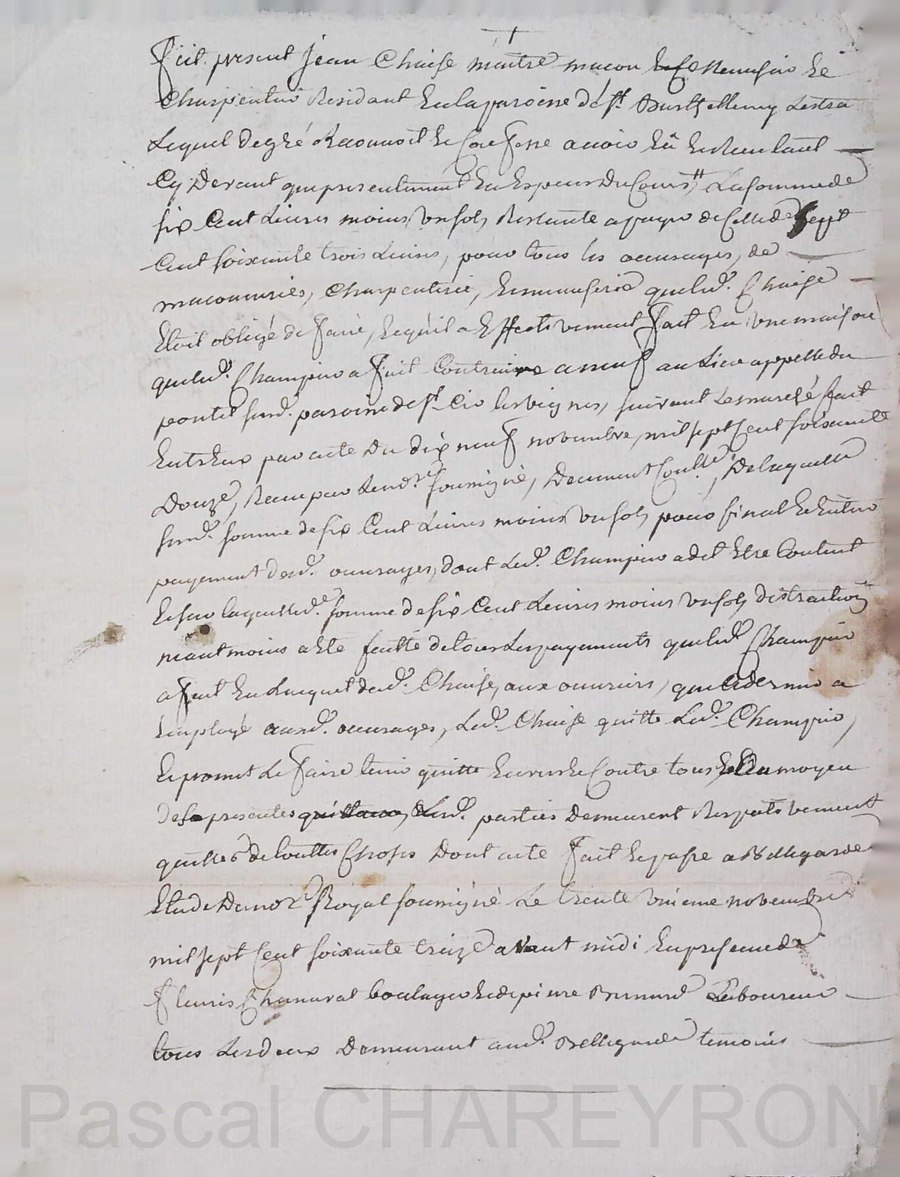 fut present jean Chaise maitre macon menusier &
Charpentier Residant En la paroisse de st. Barthellemy Lestra
Lequel de gré a Reconnoit & Confesse avoir Eü & Receu tant
Cy Devant que presentement En Especes Du Cours La somme de
six Cent Livres moins un sols Restante a payer de Celle de Sept
Cent soixante trois Livres, pour tous les ouvrages, de
maconneries, Charpenterie, & menuserie que led. Chaise
Etoit obligé de faire, & qu'il a Effectivement fait En une maison
que led. Champier a fait Contruire a neuf au Lieu appellé du
pontet susd. paroisse de st. Cir les vignes, suivant Le marché fait
Entr'Eux par acte Du dix neuf novembre, mil sept Cent soixante
Douze, Receu par Le no.re soussigné, Deument Conllé, De laquelle
susd. somme de six Cent Livres moins un sols pour final & Entier
payement desd. ouvrages, dont Led. Champier a dit Etre Contant
& sur laquelled. somme de six Cent Livres moins un sols distraction
neantmoins a Eté faitte de tous Les payements que led. Champier
a fait En L'acquet dud. Chaise, aux ouvriers, que Ce dernier a
Employé auxd. ouvrages, Led. Chaise quitte Led. Champier,
& promet Le faire tenir quitte Envers & Contre tous, & au moyen
des presentes quittance, Lesd. parties Demeurent Respectivement
quittes de touttes Choses Dont acte fait & passé a Bellegarde
Etude Du no.re Royal soussigné Le trente unieme novembre
mil sept Cent soixante treize avant midi En presence de
fleuris Chanavat boulager & de pierre Brunard Laboureur
tous Les deux Demeurant aud. Bellegarde temoins
Pascal CHAREYRON